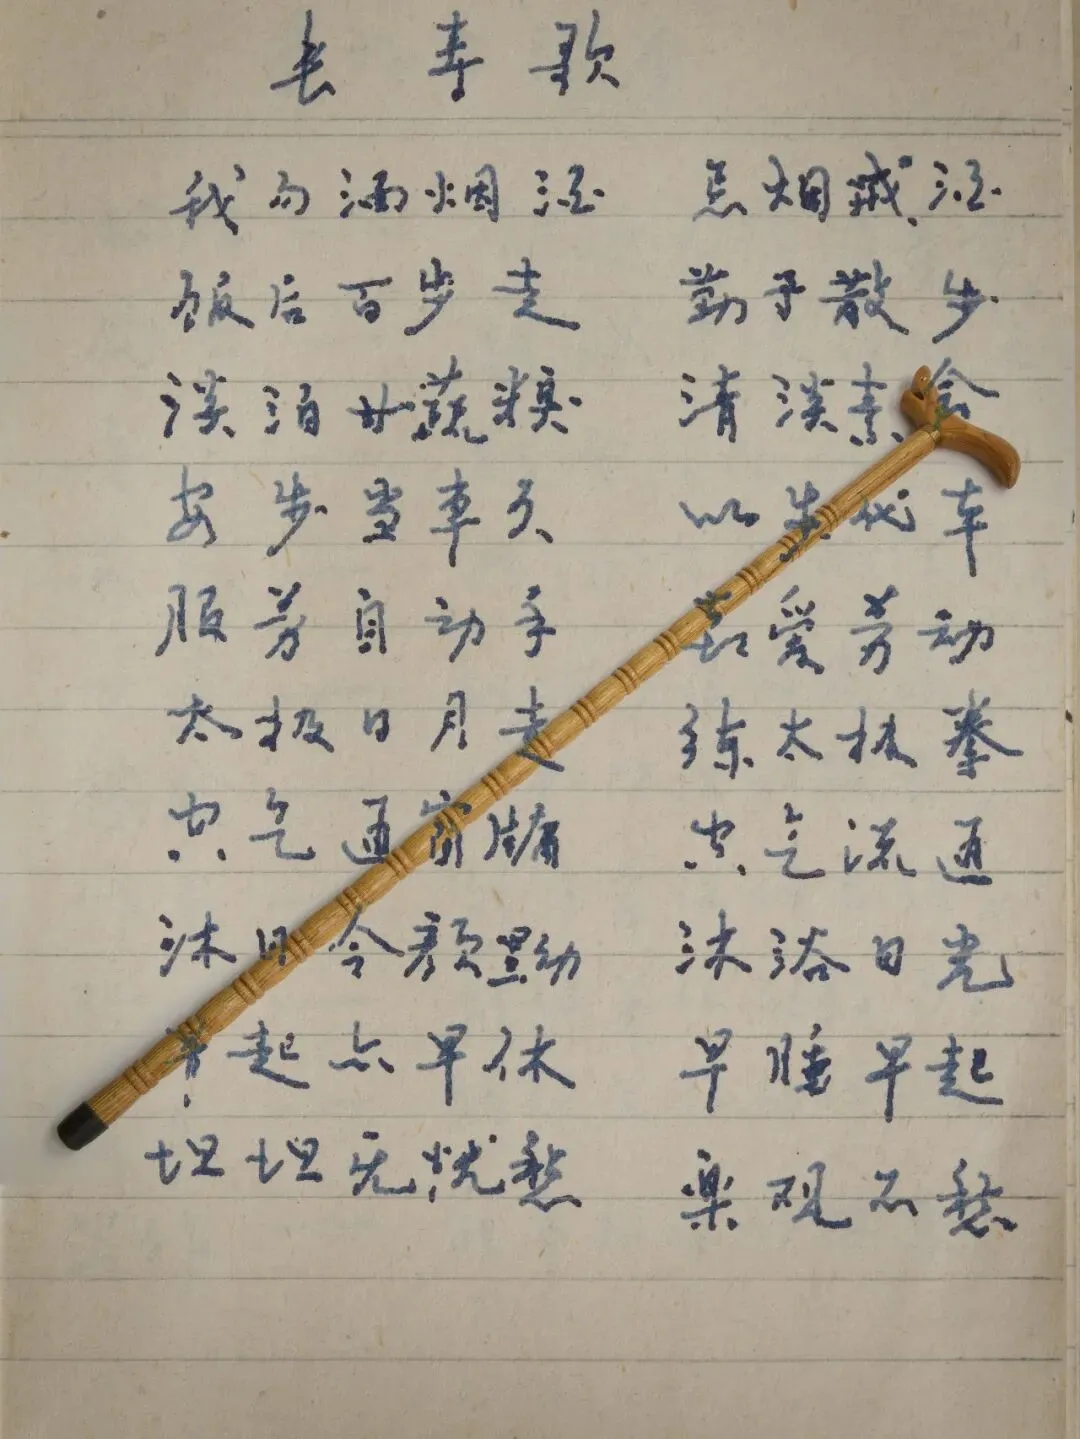 长寿歌
我勿湎烟酒 忌烟戒酒
饭后百步走 勤于散步
淡泊甘蔬粮 清淡素食
安步当車久 以步代车
服劳自动手 热爱劳动
太极日月走 练太极拳
空气通窗牖 空气流通
沐日令颜黑动 沐浴日光
早起亦早休 早睡早起
坦坦无忧愁 楽观不愁